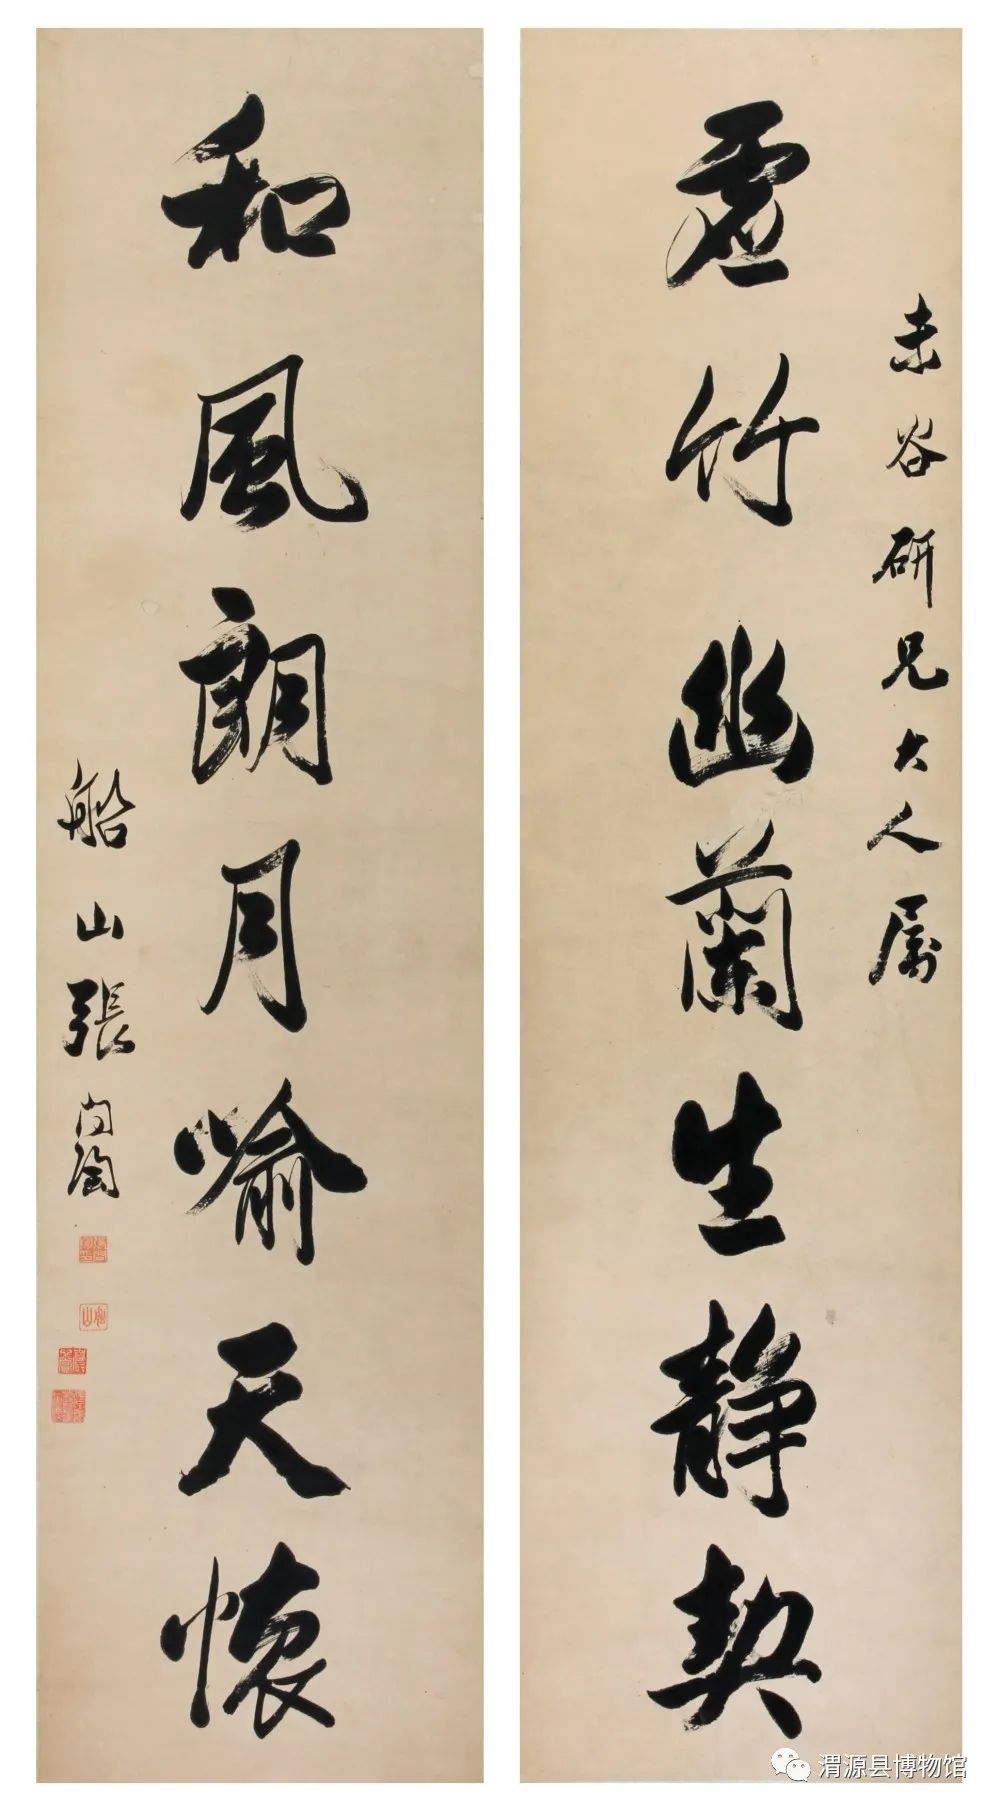 未谷研兄大人属
虚竹幽蘭生静契
和風朗月喻天懷
船山張问陶
渭源县博物馆